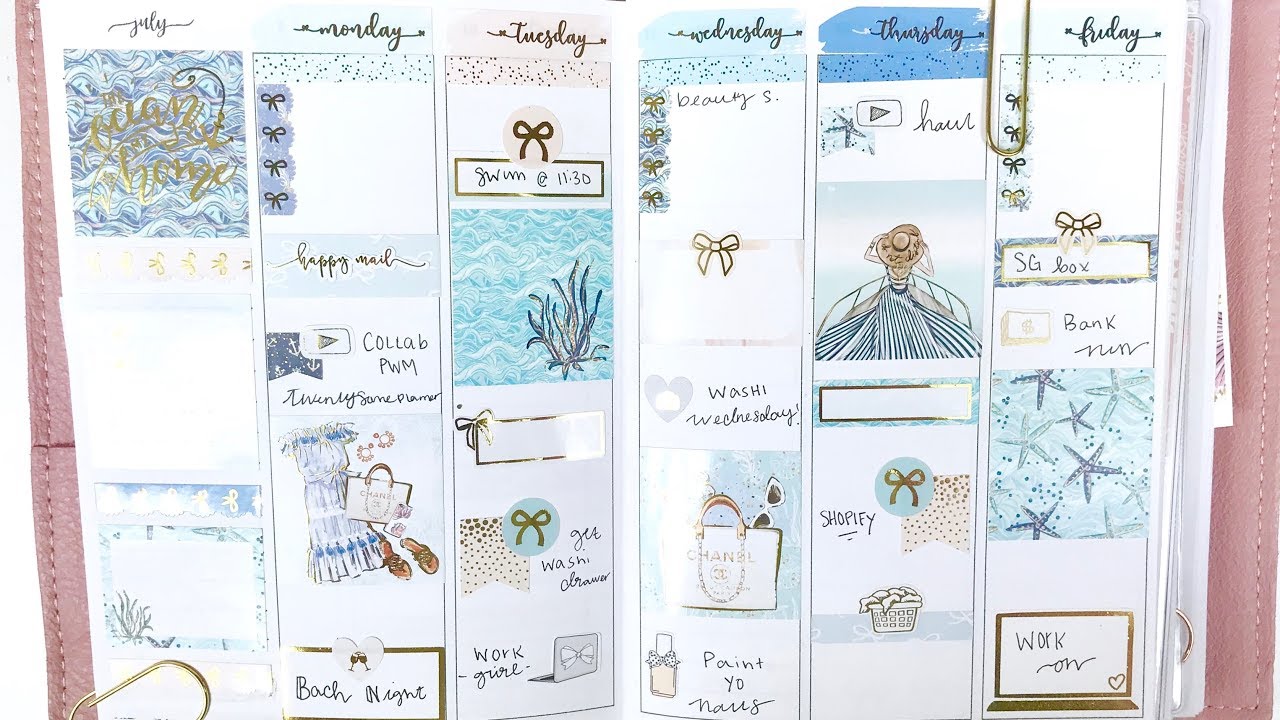 july
the
ocean
is my
home
monday
happy mail
COLLAB
PWM
Twentysomeplanner
CHANEL
Bach Night
Tuesday
Swim @ 11:30
get
washi
drawer
WORK
wednesday
beauty s.
WASHI
wednesday!
CHANEL
Paint
YO
nails
thursday
haul
SHOPIFY
friday
SG box
Bank
run
WORK
on